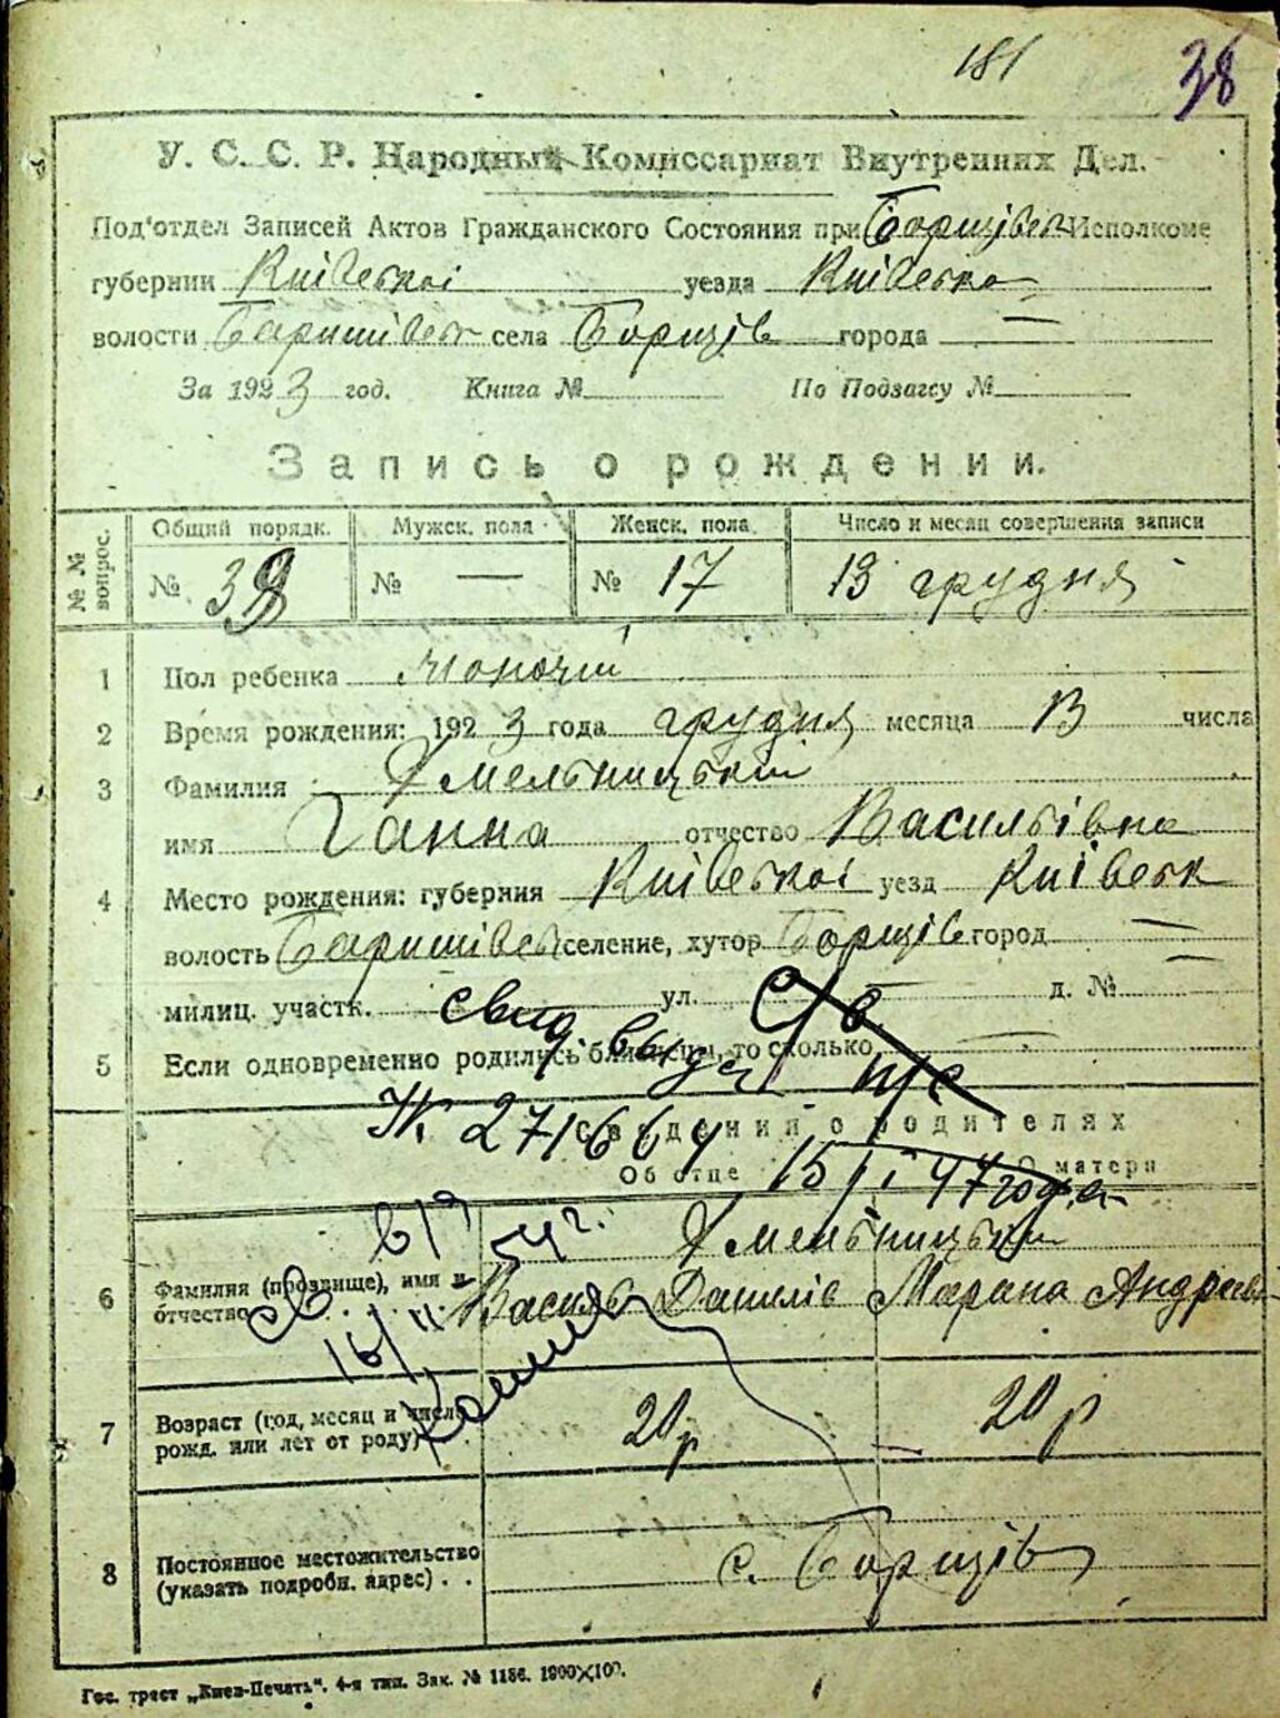 181 38
У. С. С. Р. Народный Комиссариат Внутренних Дел.
Под'отдел Записей Актов Гражданского Состояния при Борщівськ Исполкоме
губернии Київської уезда Київсько
волости Баришівськ села Борщів города —
За 1923 год. Книга № По Подзагсу №
Запись о рождении.
№ № вопрос. Общий порядк. Мужск. пола Женск. пола Число и месяц совершения записи
№ 38 № — № 17 13 грудня
1 Пол ребенка жіночій
2 Время рождения: 1923 года грудня месяца 13 числа
3 Фамилия Хмельницький
имя Ганна отчество Васильівна
4 Место рождения: губерния Київської уезд Київськ
волость Баришівськ селение, хутор Борщів город —
милиц. участк. ул. — д. № —
свид. выдан
5 Если одновременно родились близнецы, то сколько —
Ж 271664
Сведения о родителях
Об отце О матери
15/I 47 года
54 г.
Хмельницький
6 Фамилия (прозвище), имя и отчество . . . Василь Данилів Марина Андреев
св.
16/II
7 Возраст (год, месяц и число рожд. или лет от роду) 20 р — 20 р
8 Постоянное местожительство (указать подробн. адрес) . . с. Борщів
Гос. трест „Киев-Печать". 4-я тип. Зак. № 1156. 1900×100.